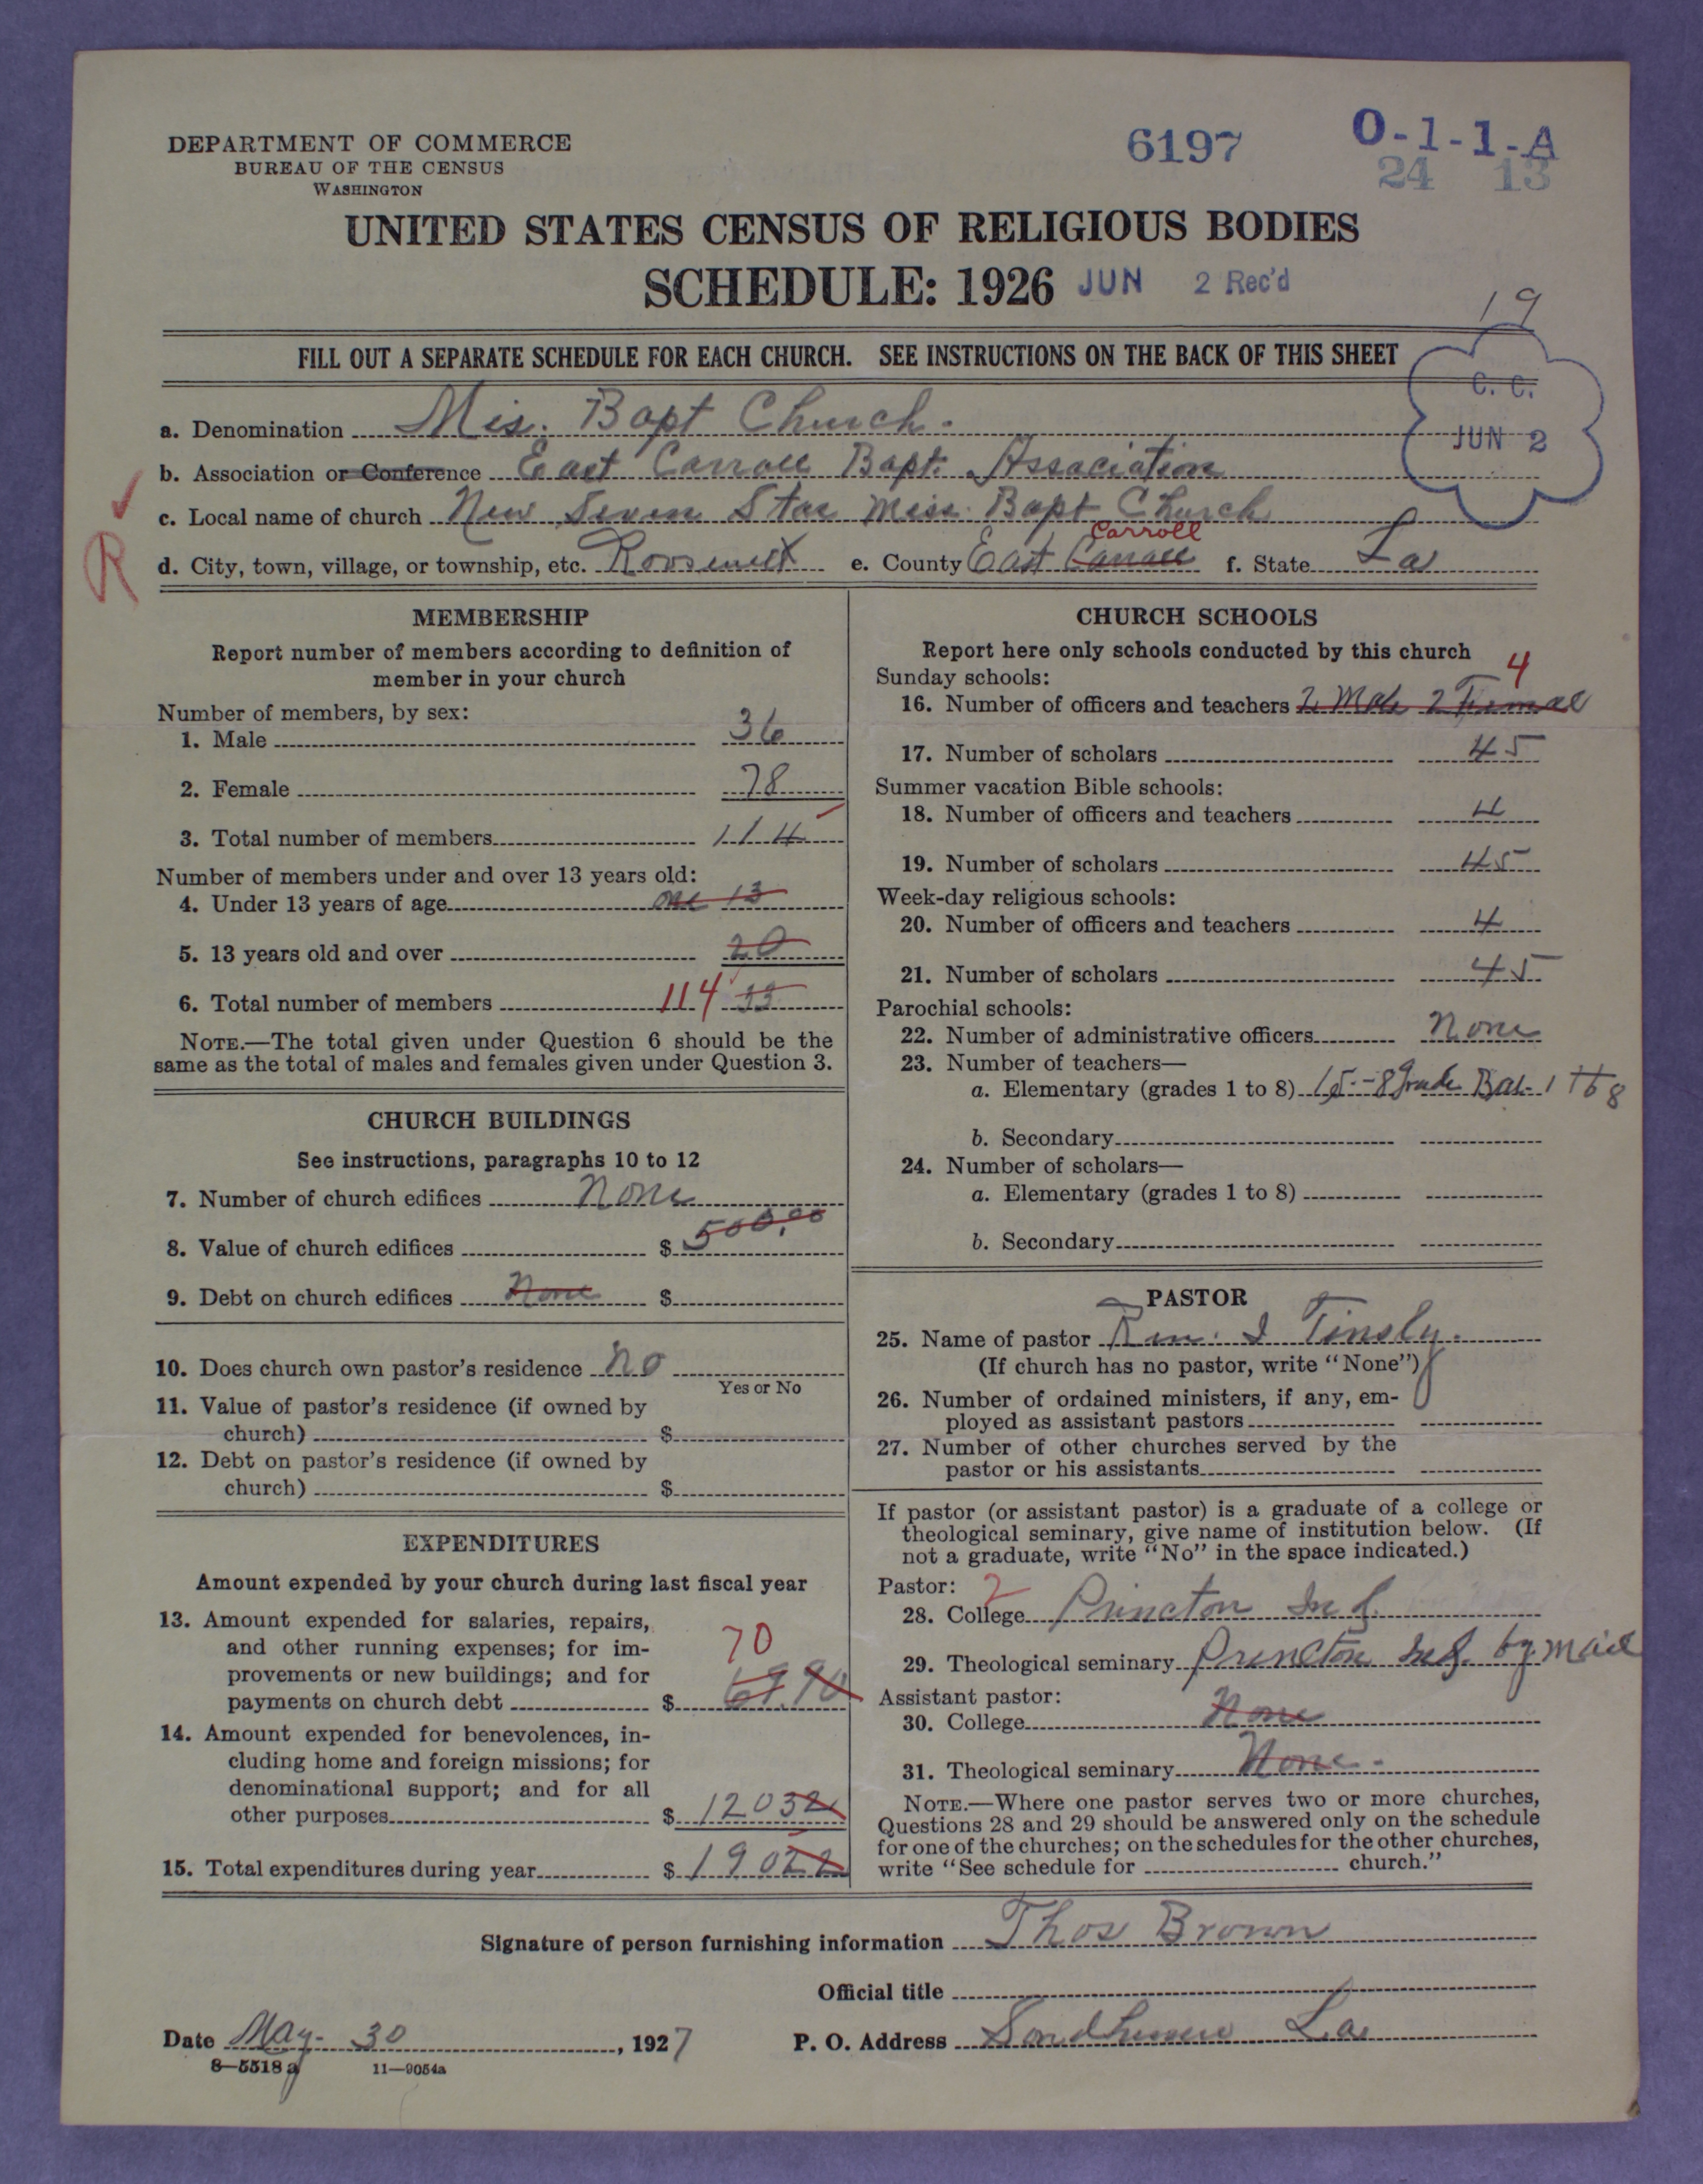 DEPARTMENT OF COMMERCE
BUREAU OF THE CENSUS
WASHINGTON
6197
O-1-1-A
24 13
UNITED STATES CENSUS OF RELIGIOUS BODIES
SCHEDULE: 1926 JUN 2 Rec'd
19
FILL OUT A SEPARATE SCHEDULE FOR EACH CHURCH. SEE INSTRUCTIONS ON THE BACK OF THIS SHEET
C. C.
JUN 2
a. Denomination Mis. Bapt Church.
b. Association or Conference East Carroll Bapt. Association
c. Local name of church New Seven Star Miss. Bapt Church
R
d. City, town, village, or township, etc. Roosevelt e. County East Carroll Carroll f. State La
MEMBERSHIP
Report number of members according to definition of
member in your church
Number of members, by sex:
1. Male 36
2. Female 78
3. Total number of members 114
Number of members under and over 13 years old:
4. Under 13 years of age one 13
5. 13 years old and over 20
6. Total number of members 114 33
NOTE.—The total given under Question 6 should be the
same as the total of males and females given under Question 3.
CHURCH BUILDINGS
See instructions, paragraphs 10 to 12
7. Number of church edifices None
8. Value of church edifices $ 500.00
9. Debt on church edifices None $
10. Does church own pastor's residence No
Yes or No
11. Value of pastor's residence (if owned by
church) $
12. Debt on pastor's residence (if owned by
church) $
EXPENDITURES
Amount expended by your church during last fiscal year
13. Amount expended for salaries, repairs,
and other running expenses; for im-
provements or new buildings; and for
70
payments on church debt $ 69.90
14. Amount expended for benevolences, in-
cluding home and foreign missions; for
denominational support; and for all
other purposes $ 12032
15. Total expenditures during year $ 19022
CHURCH SCHOOLS
Report here only schools conducted by this church
Sunday schools:
4
16. Number of officers and teachers 2 Male 2 Female
17. Number of scholars 45
Summer vacation Bible schools:
18. Number of officers and teachers 4
19. Number of scholars 45
Week-day religious schools:
20. Number of officers and teachers 4
21. Number of scholars 45
Parochial schools:
22. Number of administrative officers None
23. Number of teachers—
a. Elementary (grades 1 to 8) 8 Grade 1 to 8
b. Secondary
24. Number of scholars—
a. Elementary (grades 1 to 8)
b. Secondary
PASTOR
25. Name of pastor Rev. I Tinsly.
(If church has no pastor, write "None")
26. Number of ordained ministers, if any, em-
ployed as assistant pastors
27. Number of other churches served by the
pastor or his assistants
If pastor (or assistant pastor) is a graduate of a college or
theological seminary, give name of institution below. (If
not a graduate, write "No" in the space indicated.)
Pastor: 2
28. College Princton Ind.
29. Theological seminary Princton Ind. by mail
Assistant pastor:
30. College None
31. Theological seminary None.
NOTE.—Where one pastor serves two or more churches,
Questions 28 and 29 should be answered only on the schedule
for one of the churches; on the schedules for the other churches,
write "See schedule for church."
Signature of person furnishing information Thos Brown
Official title
Date May. 30, 1927 P. O. Address Sondheimer La
8—5518a 11—9054a